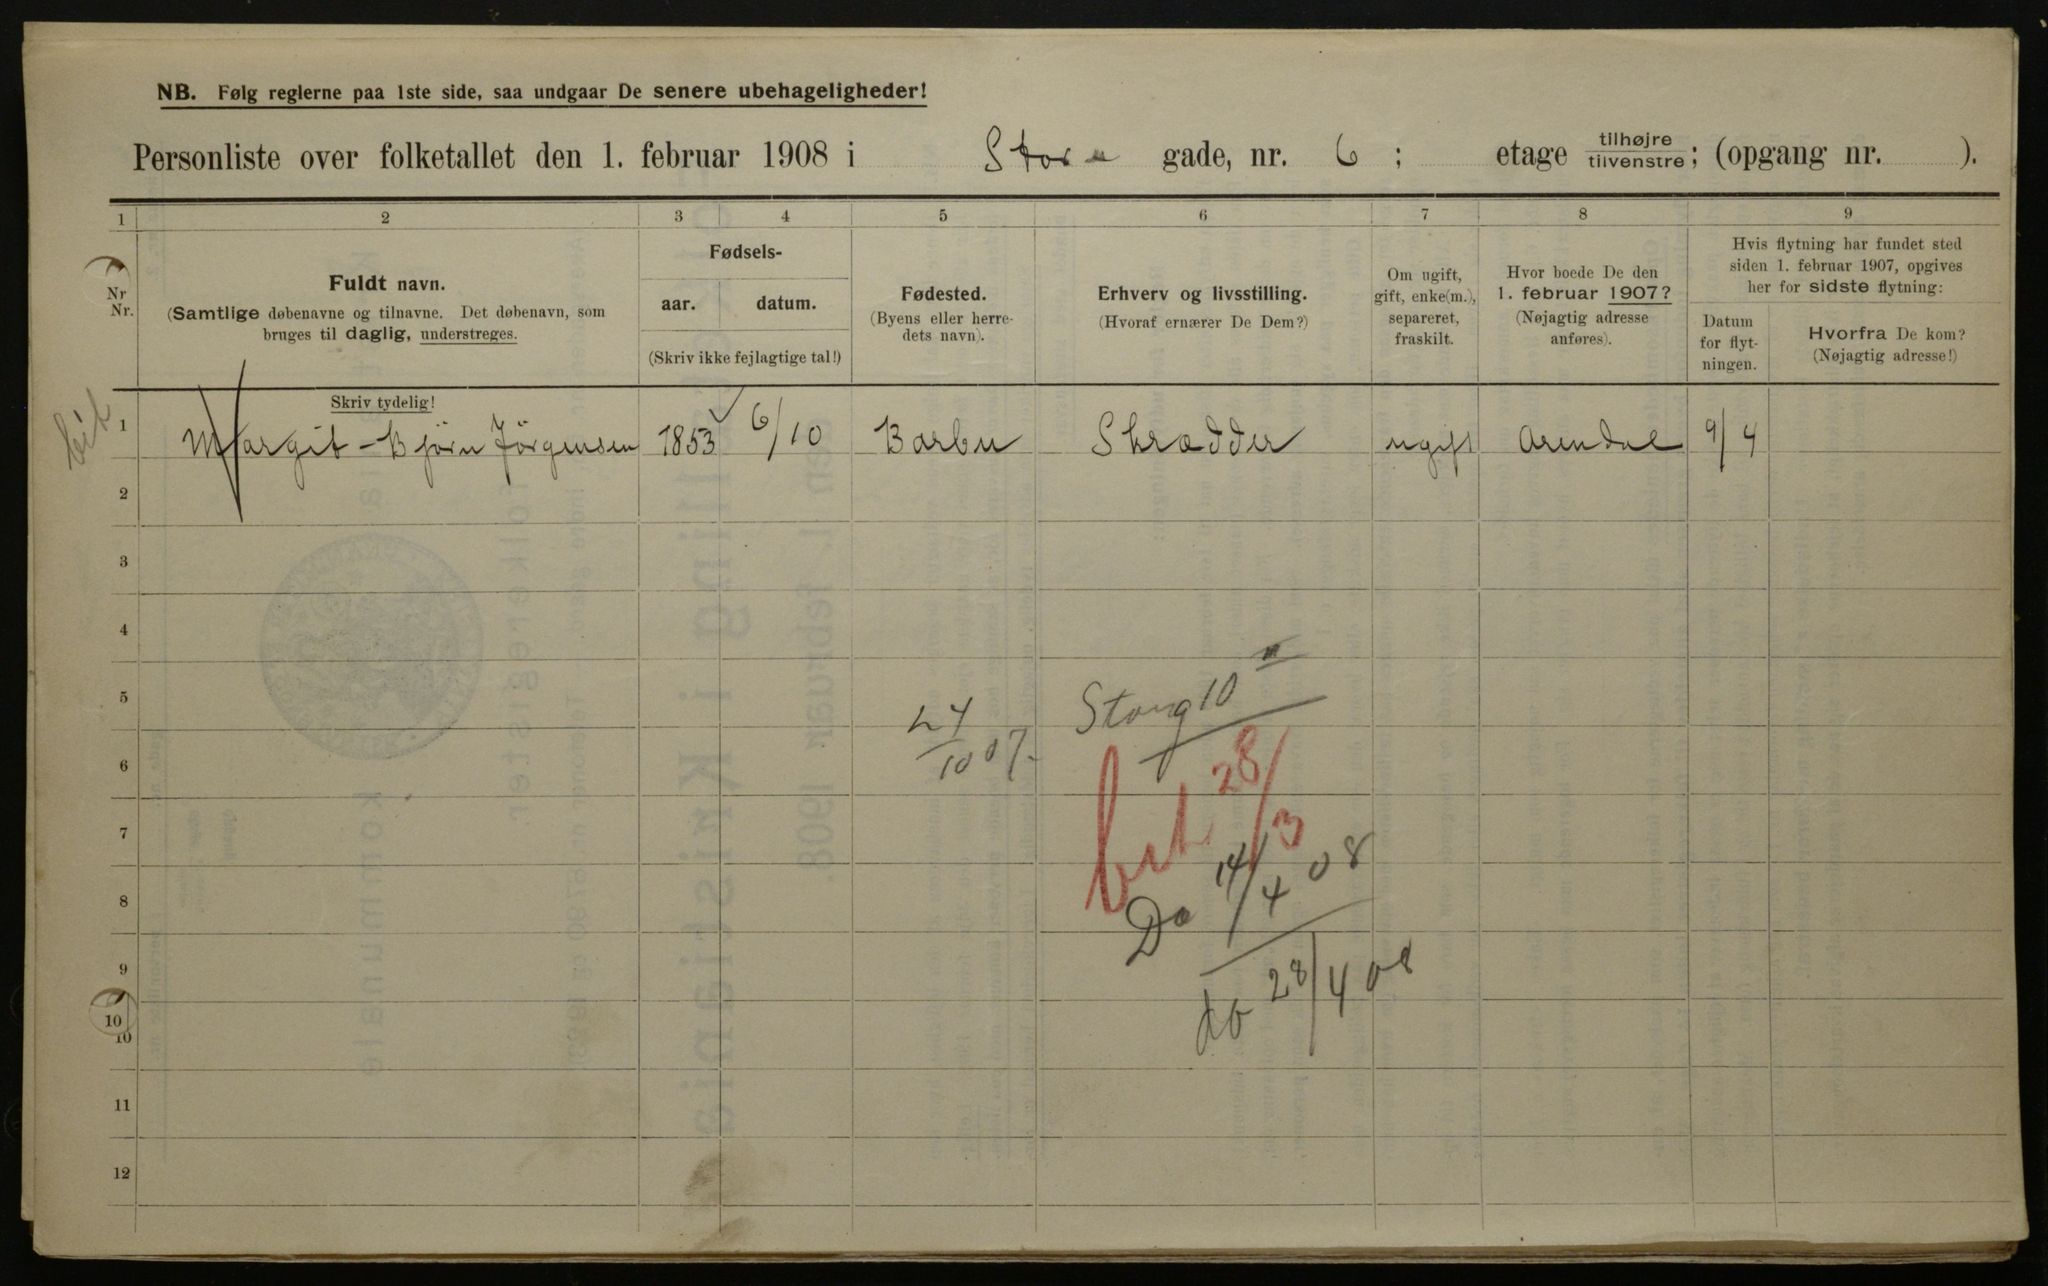 NB. Følg reglerne paa 1ste side, saa undgaar De senere ubehageligheder!
Personliste over folketallet den 1. februar 1908 i Stor gade, nr. 6 ; etage tilhøjre tilvenstre; (opgang nr. ).
1 2 3 4 5 6 7 8 9
Nr
Nr.
Fuldt navn.
(Samtlige døbenavne og tilnavne. Det døbenavn, som
bruges til daglig, understreges.
Fødsels-
aar. datum.
(Skriv ikke fejlagtige tal!)
Fødested.
(Byens eller herre-
dets navn).
Erhverv og livsstilling.
(Hvoraf ernærer De Dem?)
Om ugift,
gift, enke(m.),
separeret,
fraskilt.
Hvor boede De den
1. februar 1907?
(Nøjagtig adresse
anføres).
Hvis flytning har fundet sted
siden 1. februar 1907, opgives
her for sidste flytning:
Datum
for flyt-
ningen.
Hvorfra De kom?
(Nøjagtig adresse!)
Skriv tydelig!
1 Margit-Bjørn Jørgensen 1853 6/10 Barbu Skrædder ugift Arendal 9/4
2
3
4
5
6
7
8
9
10
10
11
12
24/10 07.
Storg 10 II
28/3
Do 14/4 08
do 28/4 08